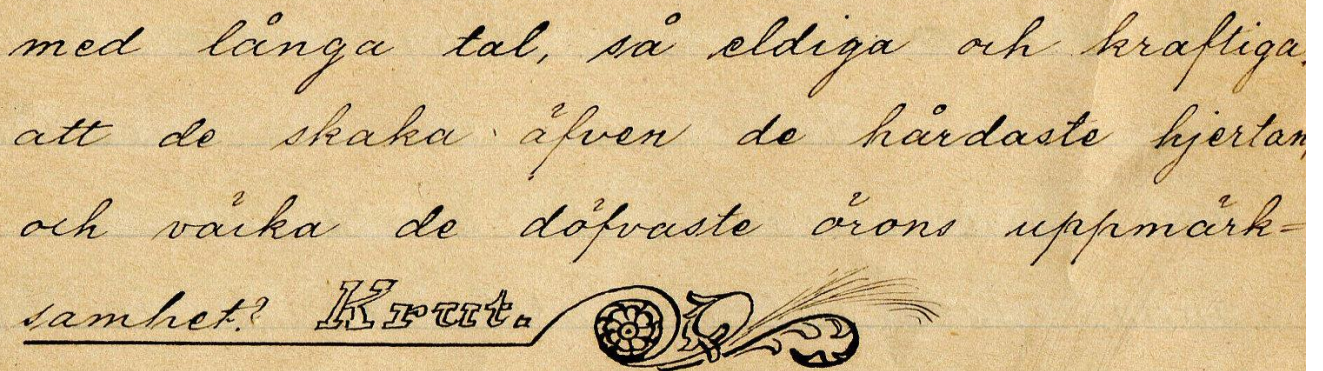 med långa tal, så eldiga och kraftiga,
att de skaka äfven de hårdaste hjertan,
och väcka de döfvaste örons uppmärk=
samhet? Krut.